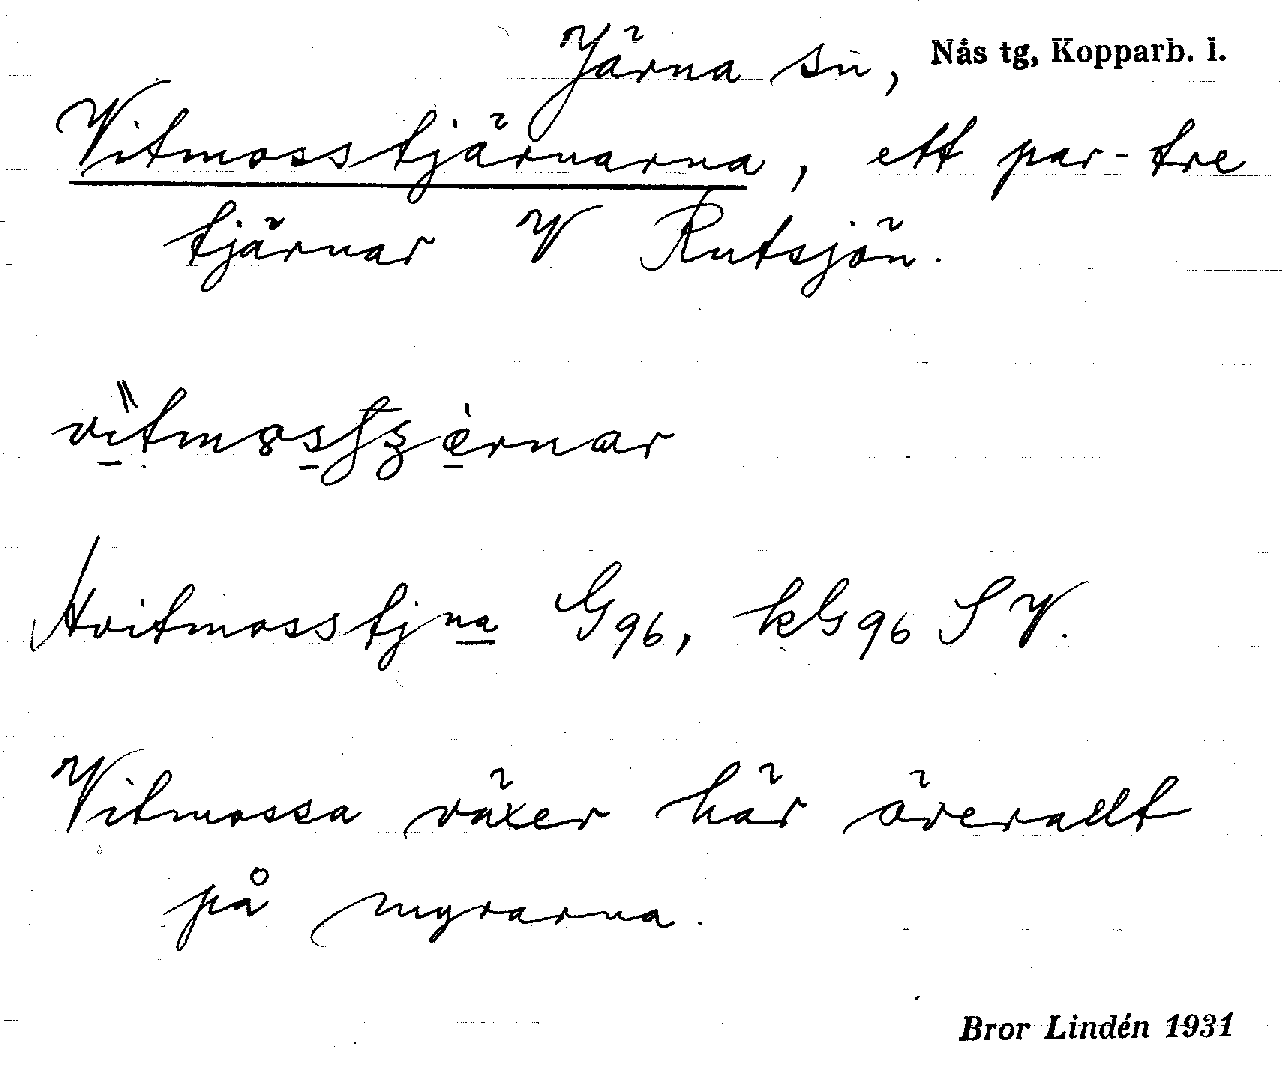 Järna sn, Nås tg, Kopparb. l.
Vitmosstjärnarna, ett par-tre
tjärnar V Rutsjön.
Hvitmosstjna G96, kG96 SV.
Vitmossa växer här överallt
på myrarna.
Bror Lindén 1931